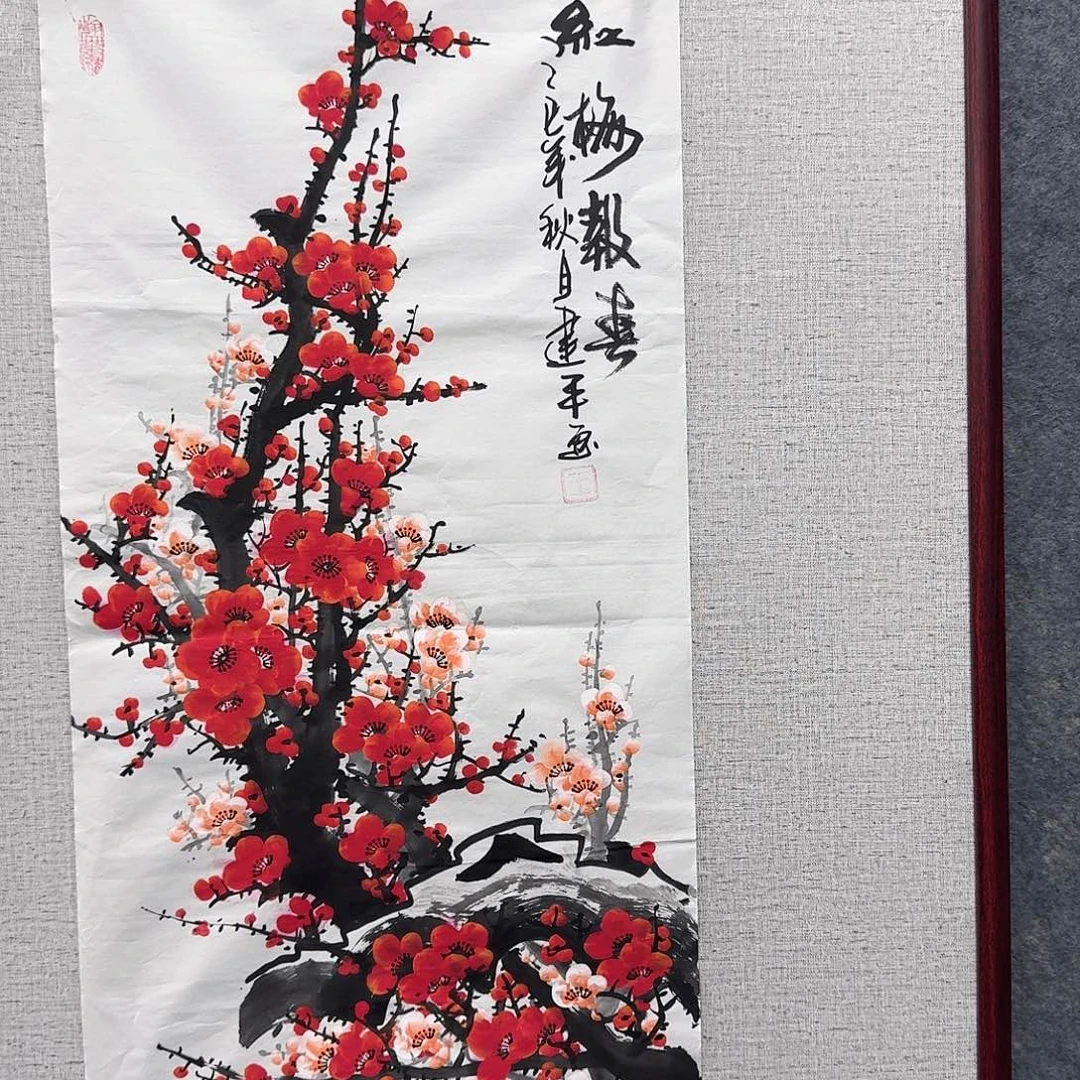 红梅报春
乙巳年秋月建平画